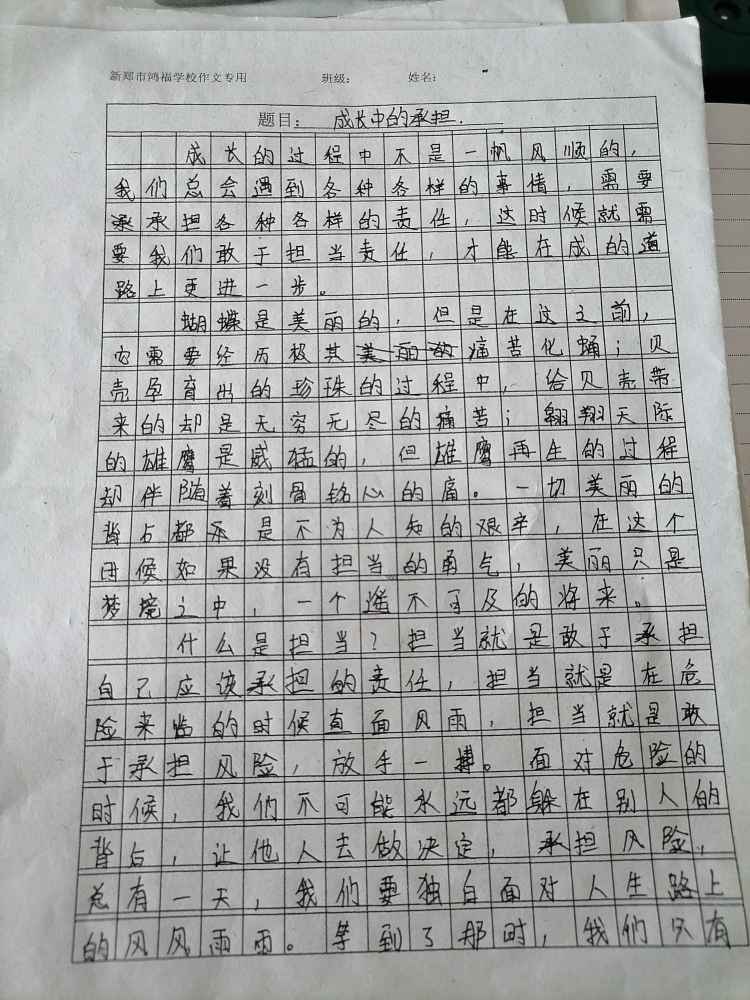 新郑市鸿福学校作文专用 班级: 姓名:
题目: 成长中的承担.
成长的过程中不是一帆风顺的,
我们总会遇到各种各样的事情,需要
承担各种各样的责任,这时候就需
要我们敢于担当责任,才能在成的道
路上更进一步。
蝴蝶是美丽的,但是在这之前,
它需要经历极其痛苦化蛹;贝
壳孕育出的珍珠的过程中,给贝壳带
来的却是无穷无尽的痛苦;翱翔天际
的雄鹰是威猛的,但雄鹰再生的过程
却伴随着刻骨铭心的痛。一切美丽的
背后都是不为人知的艰辛,在这个
时候如果没有担当的勇气,美丽只是
梦境之中,一个遥不可及的将来。
什么是担当?担当就是敢于承担
自己应该承担的责任,担当就是在危
险来临的时候直面风雨,担当就是敢
于承担风险,放手一搏。面对危险的
时候,我们不可能永远都躲在别人的
背后,让他人去做决定,承担风险,
总有一天,我们要独自面对人生路上
的风风雨雨。等到了那时,我们只有